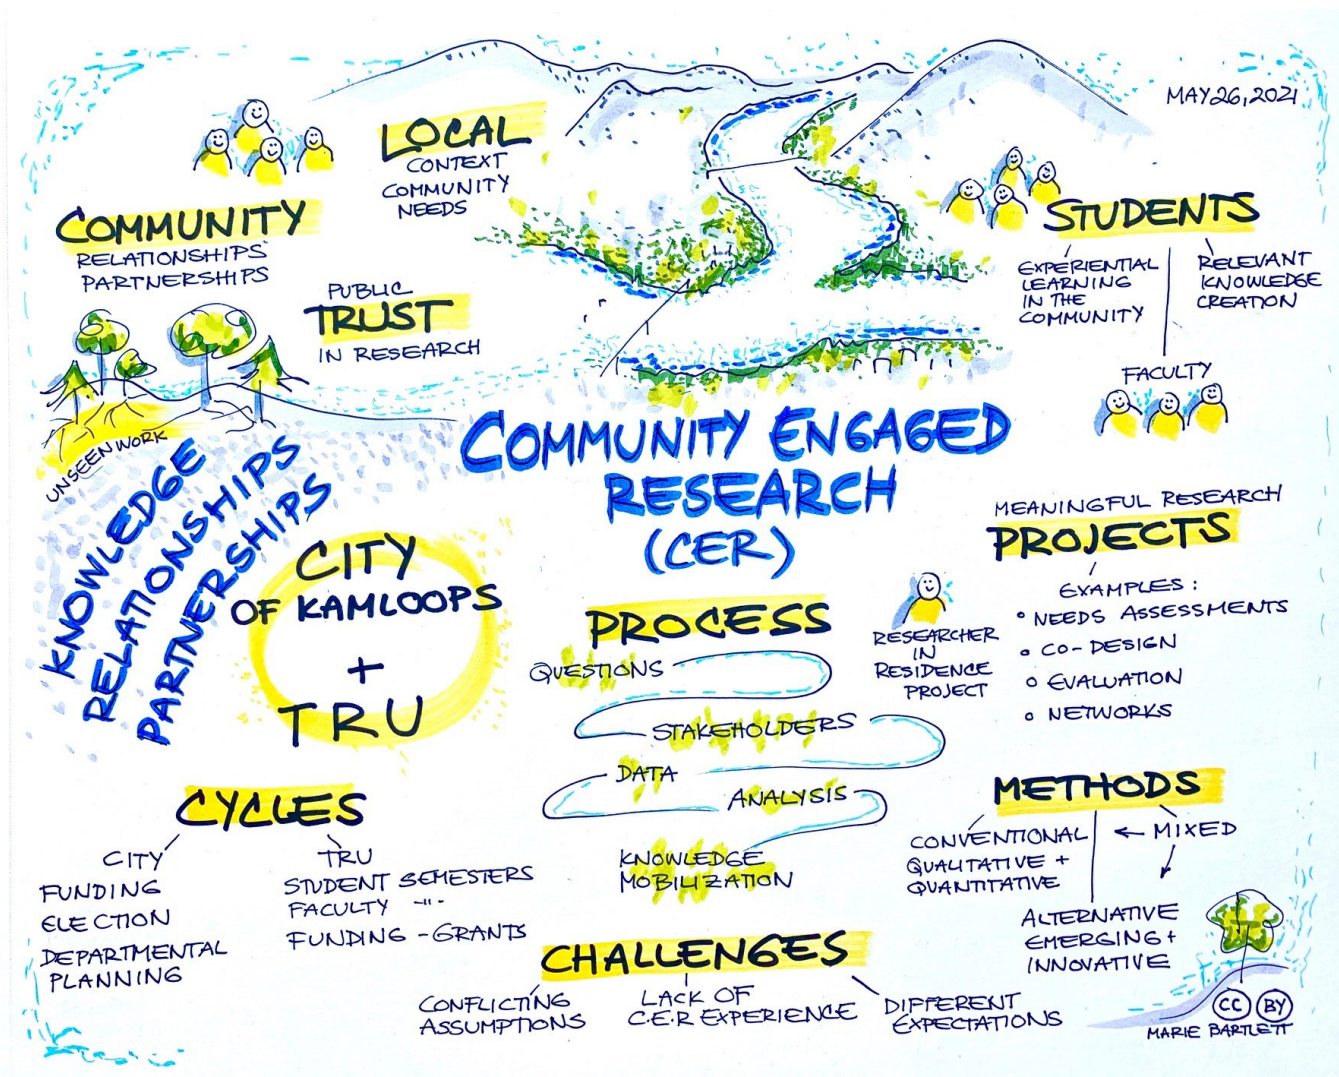 MAY 26, 2021
LOCAL
CONTEXT
COMMUNITY
NEEDS
COMMUNITY
RELATIONSHIPS
PARTNERSHIPS
PUBLIC
TRUST
IN RESEARCH
STUDENTS
EXPERIENTIAL
LEARNING
IN THE
COMMUNITY
RELEVANT
KNOWLEDGE
CREATION
FACULTY
UNSEEN WORK
KNOWLEDGE
RELATIONSHIPS
PARTNERSHIPS
COMMUNITY ENGAGED
RESEARCH
(CER)
CITY
OF KAMLOOPS
+
TRU
PROCESS
QUESTIONS
STAKEHOLDERS
DATA
ANALYSIS
KNOWLEDGE
MOBILIZATION
RESEARCHER
IN
RESIDENCE
PROJECT
MEANINGFUL RESEARCH
PROJECTS
EXAMPLES:
° NEEDS ASSESSMENTS
° CO-DESIGN
° EVALUATION
° NETWORKS
METHODS
CONVENTIONAL
QUALITATIVE +
QUANTITATIVE
← MIXED
ALTERNATIVE
EMERGING +
INNOVATIVE
CYCLES
CITY
FUNDING
ELECTION
DEPARTMENTAL
PLANNING
TRU
STUDENT SEMESTERS
FACULTY -"-
FUNDING - GRANTS
CHALLENGES
CONFLICTING
ASSUMPTIONS
LACK OF
C.E.R EXPERIENCE
DIFFERENT
EXPECTATIONS
CC BY
MARIE BARTLETT